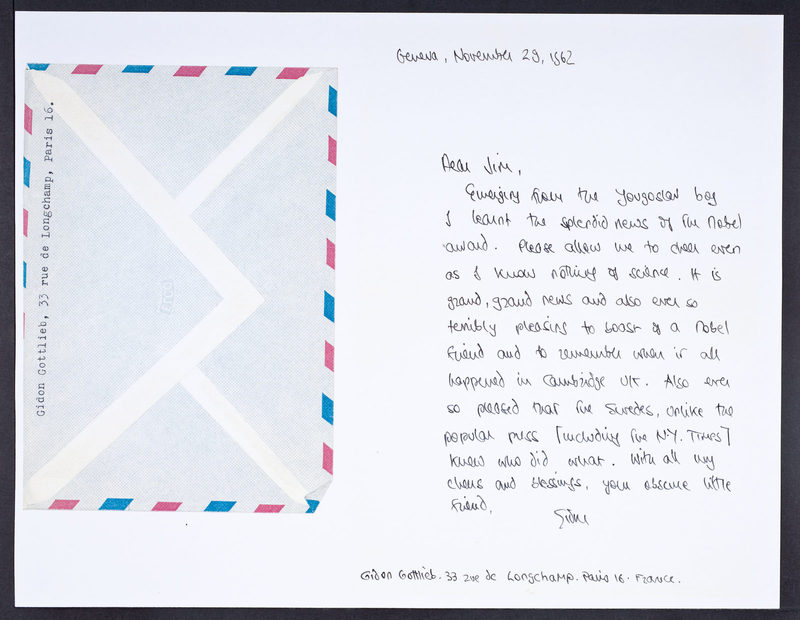 Gidon Gottlieb, 33 rue de Longchamp, Paris 16.
Geneva, November 29, 1962
Dear Jim,
Emerging from the Yougoslav bog
I learnt the splendid news of the Nobel
award. Please allow me to cheer even
as I know nothing of science. It is
grand, grand news and also ever so
terribly pleasing to boast of a Nobel
friend and to remember when it all
happened in Cambridge UK. Also ever
so pleased that the Swedes, unlike the
popular press [including the N.Y. Times]
knew who did what. With all my
cheers and blessings, your obscure little
friend,
Gidon Gottlieb. 33 rue de Longchamp. Paris 16. France.